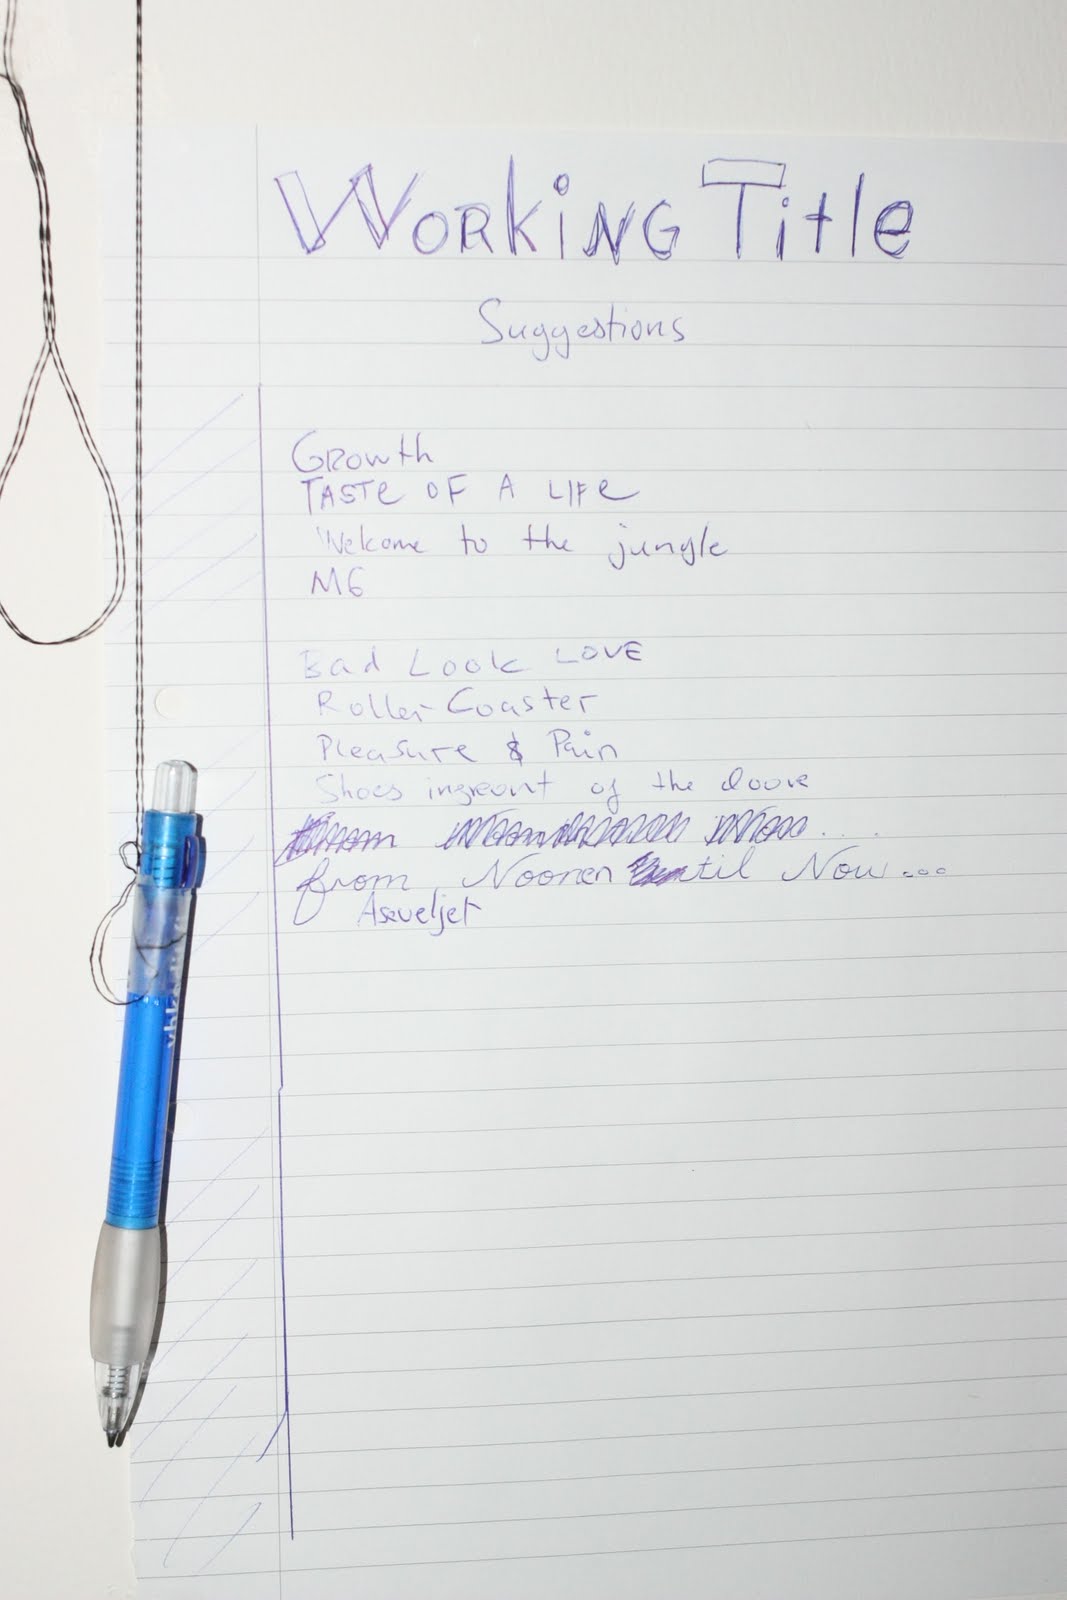 WORKiNG TitlE
Suggestions
Growth
TASTE OF A LIFE
Welcome to the jungle
M6
Bad Look LOVE
Roller-Coaster
Pleasure & Pain
Shoes ingreont of the doore
from Nooren until Now...